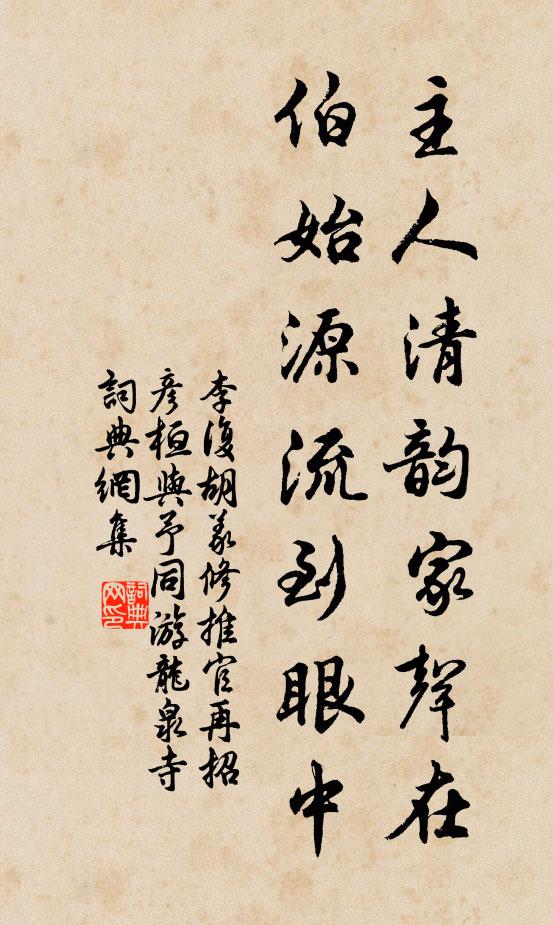 主人清韵家聲在
伯始源流到眼中
李復胡義修推官再招
彦桓與予同游龍泉寺
詞典網集
詞典
网印